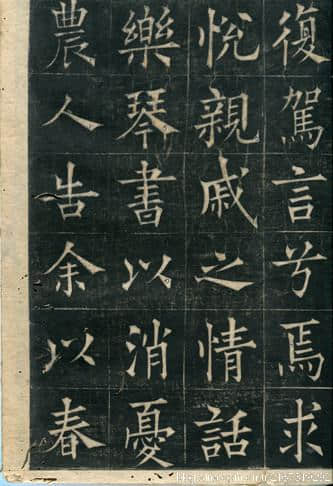 復駕言兮焉求
悅親戚之情話
樂琴書以消憂
農人告余以春